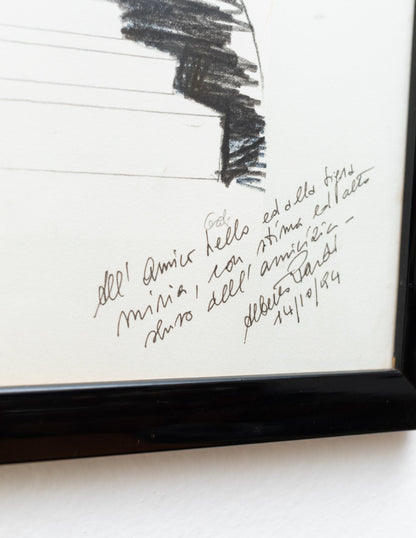 All' amico Nello ed alla Sig.ra
Miria, con stima ed alto
senso dell'amicizia -
Alberto
14/10/94